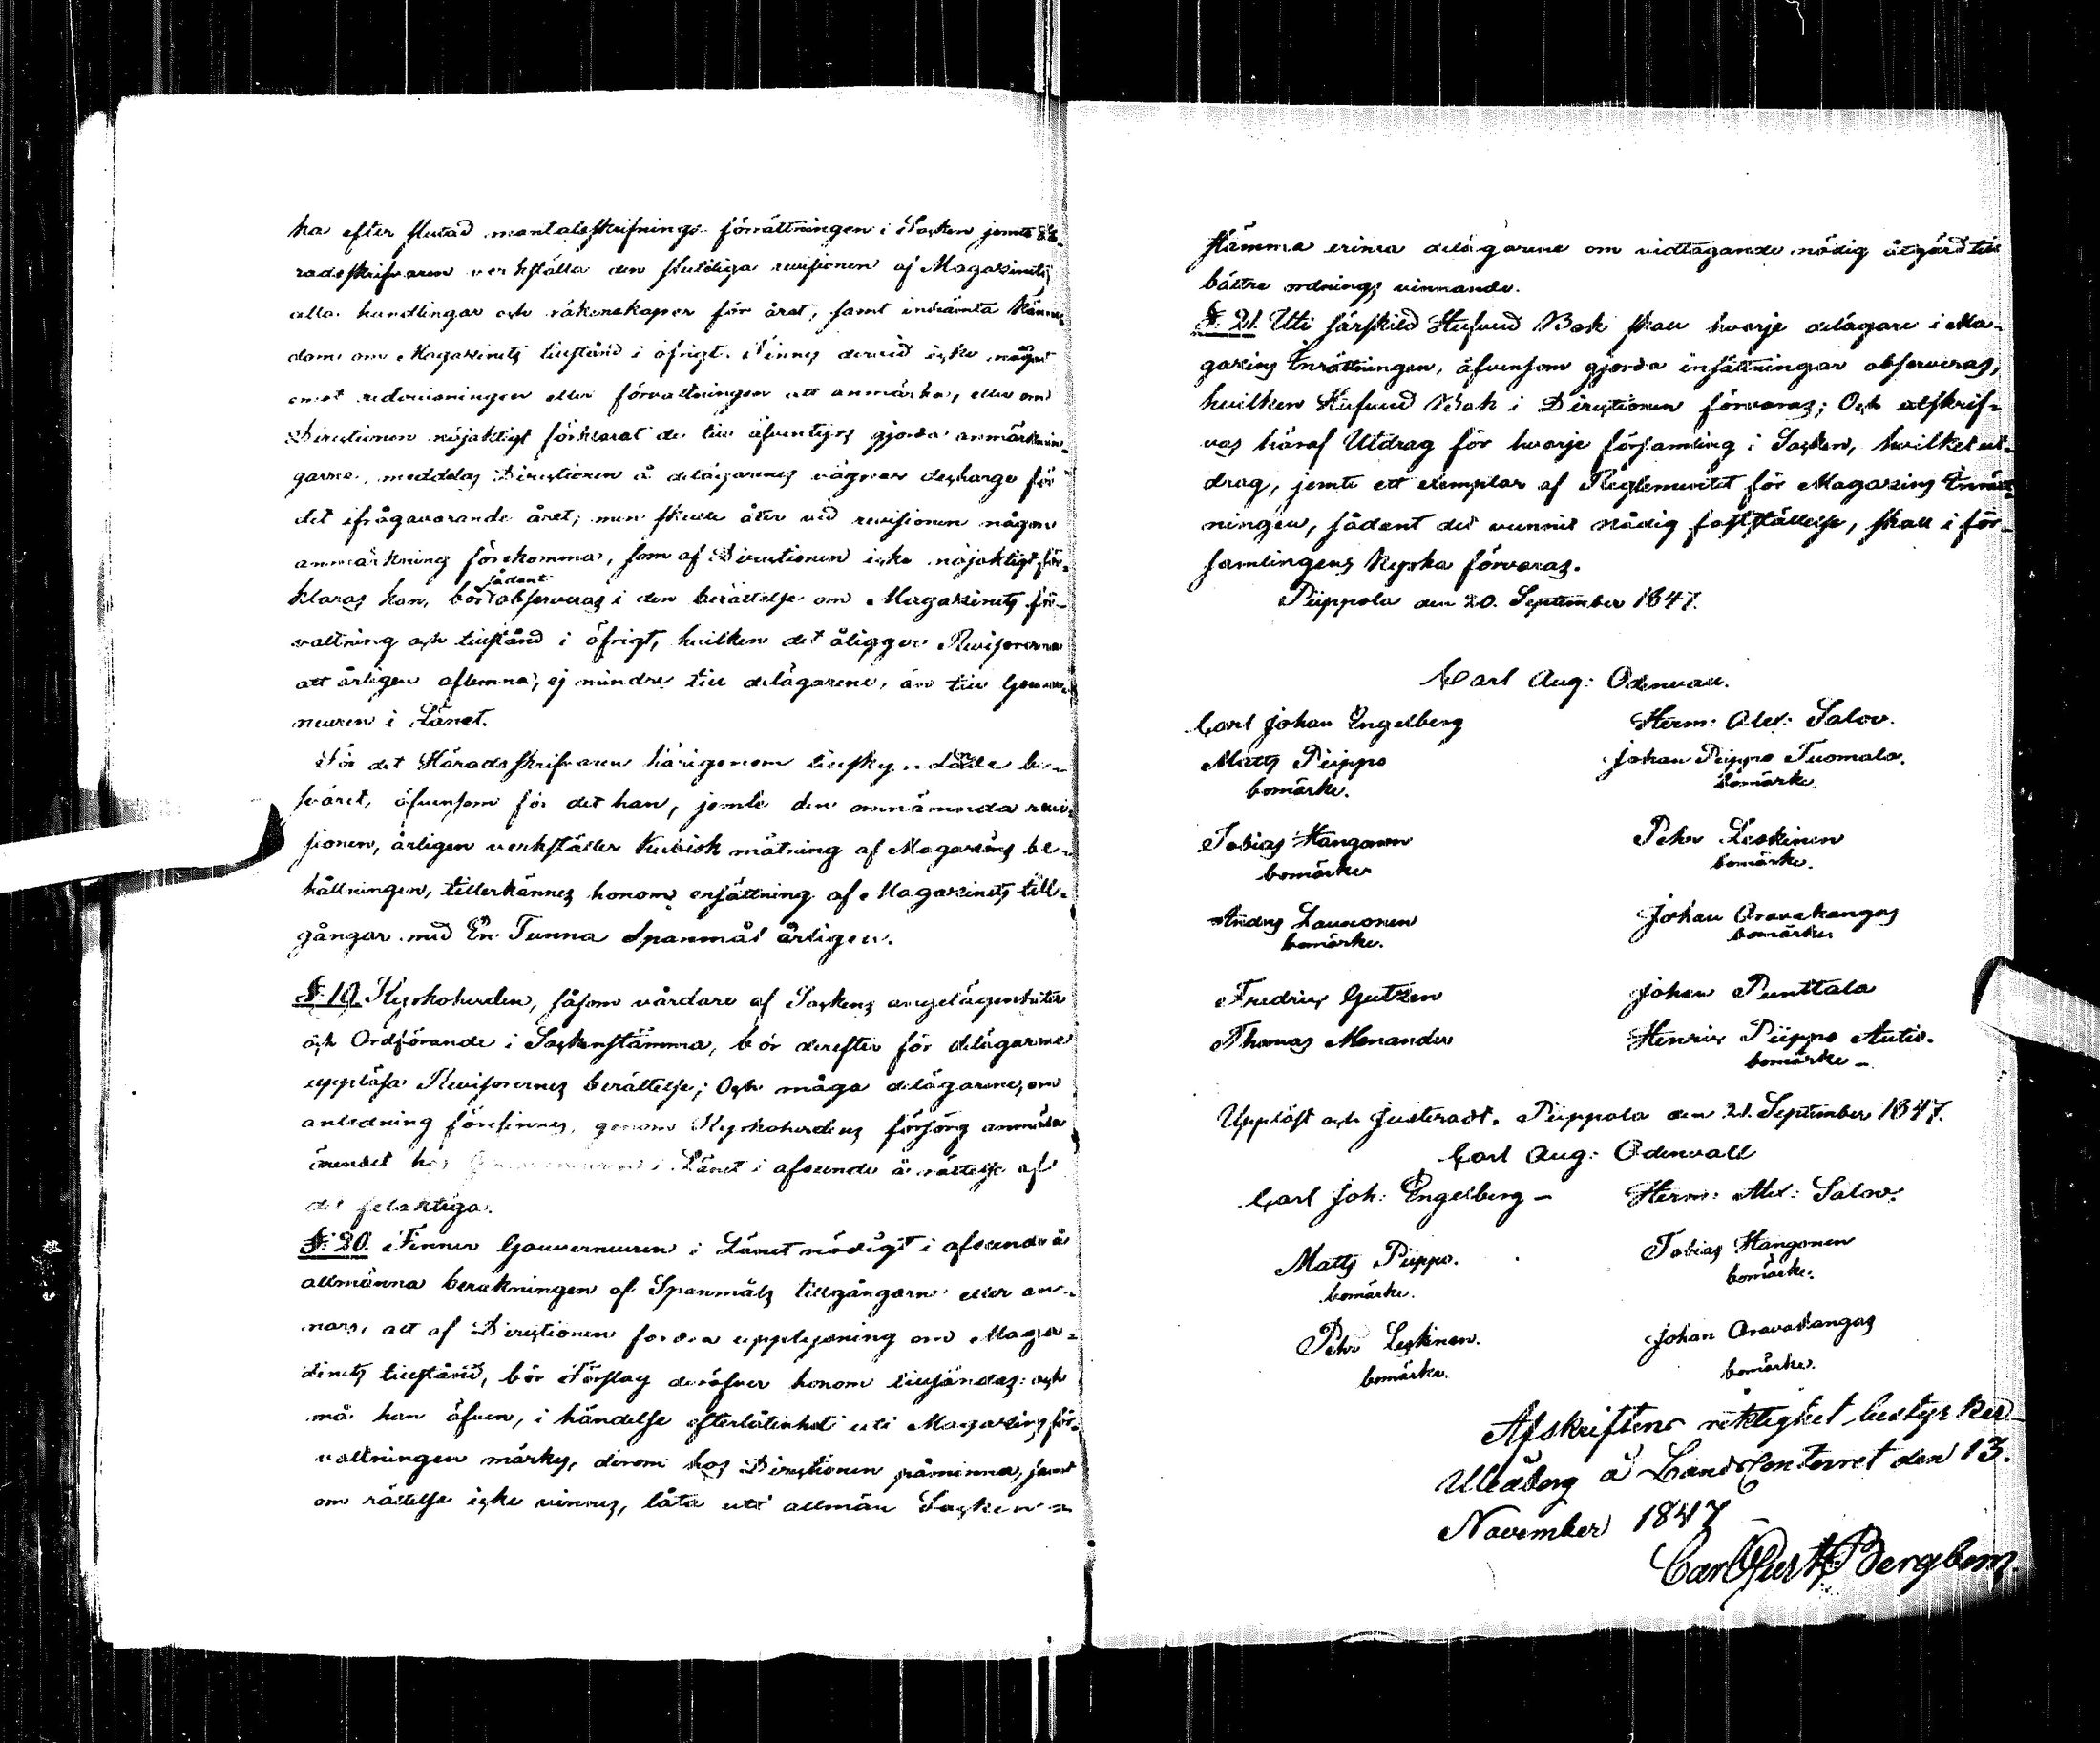 ka efter slutad mantalsskrifnings förrättningen i Socken jemte Hä-
radsskrifvaren verkställa den slutliga revisionen af Magasinets
alla handlingar och räkenskaper för året, samt inhämta känne-
dom om Magasinets tillstånd i öfrigt. Finnes dervid icke något
emot redovisningen eller förvaltningen att anmärka, eller om
Directionen nöjaktigt förklarat de till äfventyrs gjorda anmärknin-
garne, meddelas Directionen å delägarenes vägnar decharge för
det ifrågavarande året; men skulle åter vid revisionen någon
anmärkning förekomma, som af Directionen icke nöjaktigt för-
klaras kan, bör sådant observeras i den berättelse om Magasinets för-
valtning och tillstånd i öfrigt, hvilken det åligger Revisorerna
att årligen aflemna, ej mindre till delägarene, än till Gouver-
neuren i Länet.
För det Häradsskrifvaren härigenom tillskyndade be-
sväret, äfvensom för det han, jemte den omnämnda revi-
sionen, årligen verkställer Kubisk mätning af Magasins be-
hållningen, tillerkännes honom ersättning af Magasinets till-
gångar med En Tunna Spanmål årligen.
§. 19. Kyrkoherden, såsom vårdare af Sockens angelägenheter
och Ordförande i Sockenstämma, bör derefter för delägarne
uppläsa Revisorernes berättelse; Och måga delägarene, om
anledning förefinnes, genom Kyrkoherdens försorg anmäla
ärendet hos Gouverneuren i Länet i afseende å rättelse af
det felaktiga.
§. 20. Finner Gouverneuren i Länet nödigt i afseende å
allmänna berakningen af Spanmåls tillgångarne eller an-
nars, att af Directionen fordra upplysning om Maga-
sinets tillstånd, bör Förslag deröfver honom tillsändas: och
må han äfven, i händelse efterlåtenhet uti Magasins för-
valtningen märkes, derom hos Directionen påminna, samt
om rättelse icke vinnes, låta uti allmän Socken-
stämma erinra delägarene om vidtagande nödig åtgärd till
bättre ordnings vinnande.
§. 21. Uti särskild Hufvud Bok skall hvarje delägare i Ma-
gasins Inrättningen, äfvensom gjorda insättningar observeras,
hvilken Hufvud Bok i Directionen förvaras; Och utskrif-
vas häraf Utdrag för hvarje församling i Socken, hvilket ut-
drag, jemte ett exemplar af Reglementet för Magasins Inrätt-
ningen, sådant det vunnit nådig fastställelse, skall i för-
samlingens Kyrka förvaras.
Piippola den 20. September 1847.
Carl Aug: Odenvall.
Carl Johan Engelberg Herm: Alex: Salov.
Matts Piippo Johan Piippo Tuomala.
bomärke. bomärke.
Tobias Hangonen Pehr Leskinen
bomärke bomärke.
Anders Lauronen Johan Aravakangas
bomärke. bomärke.
Fredric Gutzen Johan Punttala
Thomas Menander Henric Piippo Autio.
bomärke –
Uppläst och Justeradt. Piippola den 21. September 1847.
Carl Aug: Odenvall
Carl Joh: Engelberg – Herm: Alex: Salov.
Matts Piippo. Tobias Hangonen
bomärke. bomärke.
Pehr Leskinen. Johan Aravakangas
bomärke. bomärke.
Afskriftens riktighet bestyrker
Uleåborg å Landscontoret den 13.
November 1847
Carl Gust Bergbom.